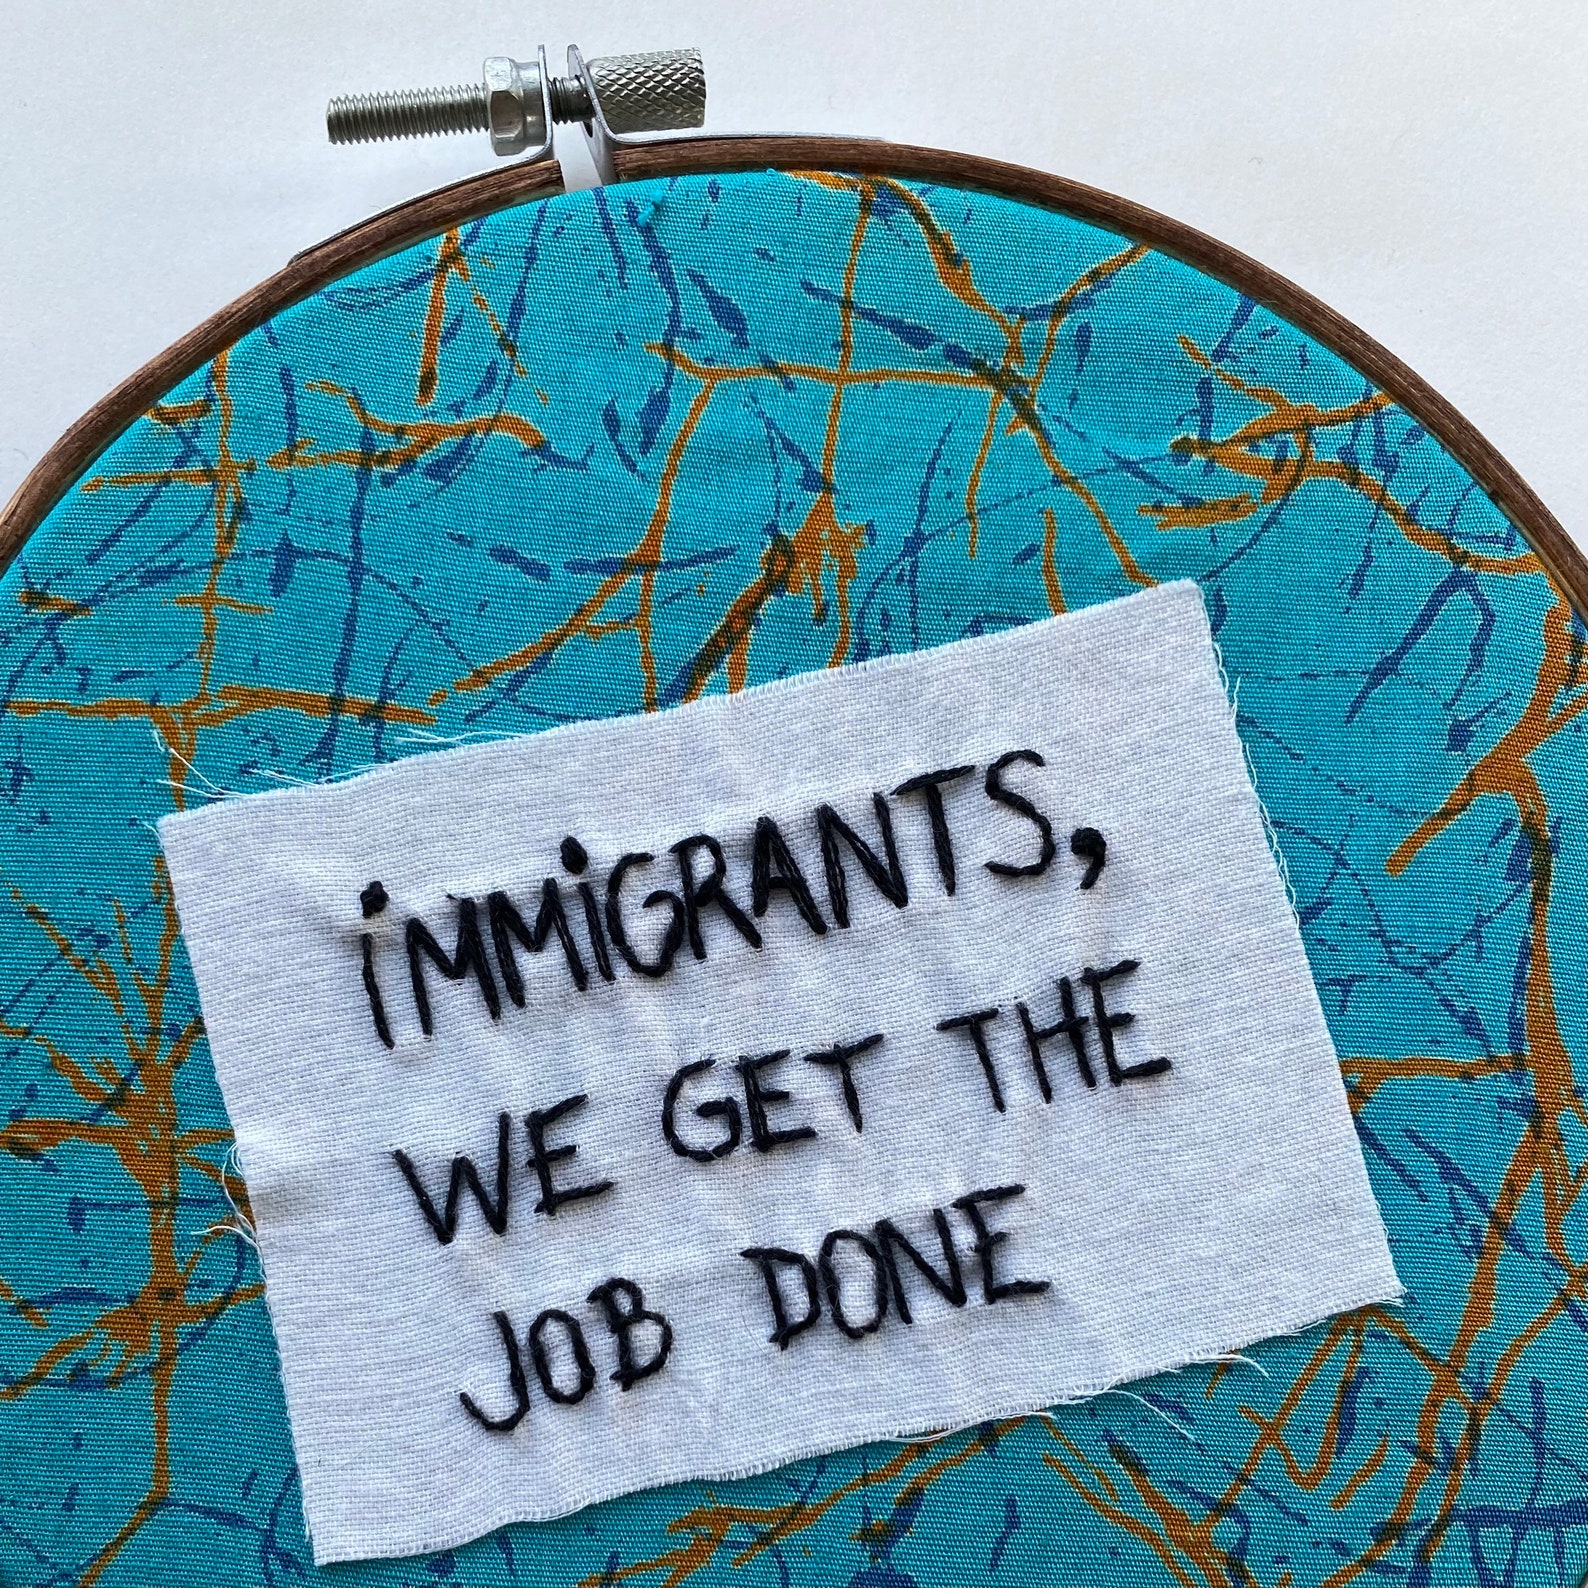 iMMiGRANTS,
WE GET THE
JOB DONE